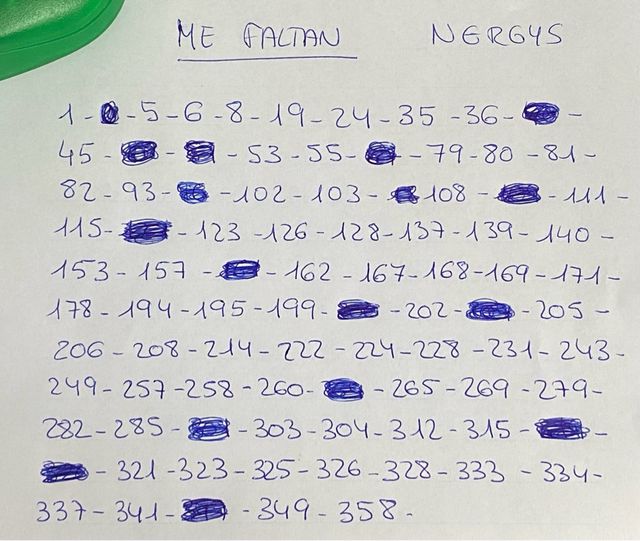 ME FALTAN NERGYS
1 - - 5 - 6 - 8 - 19 - 24 - 35 - 36 - -
45 - - - 53 - 55 - - 79 - 80 - 81 -
82 - 93 - - 102 - 103 - 108 - - 111 -
115 - - 123 - 126 - 128 - 137 - 139 - 140 -
153 - 157 - - 162 - 167 - 168 - 169 - 171 -
178 - 194 - 195 - 199 - - 202 - - 205 -
206 - 208 - 214 - 222 - 224 - 228 - 231 - 243 -
249 - 257 - 258 - 260 - - 265 - 269 - 279 -
282 - 285 - - 303 - 304 - 312 - 315 - -
- 321 - 323 - 325 - 326 - 328 - 333 - 334 -
337 - 341 - - 349 - 358 -